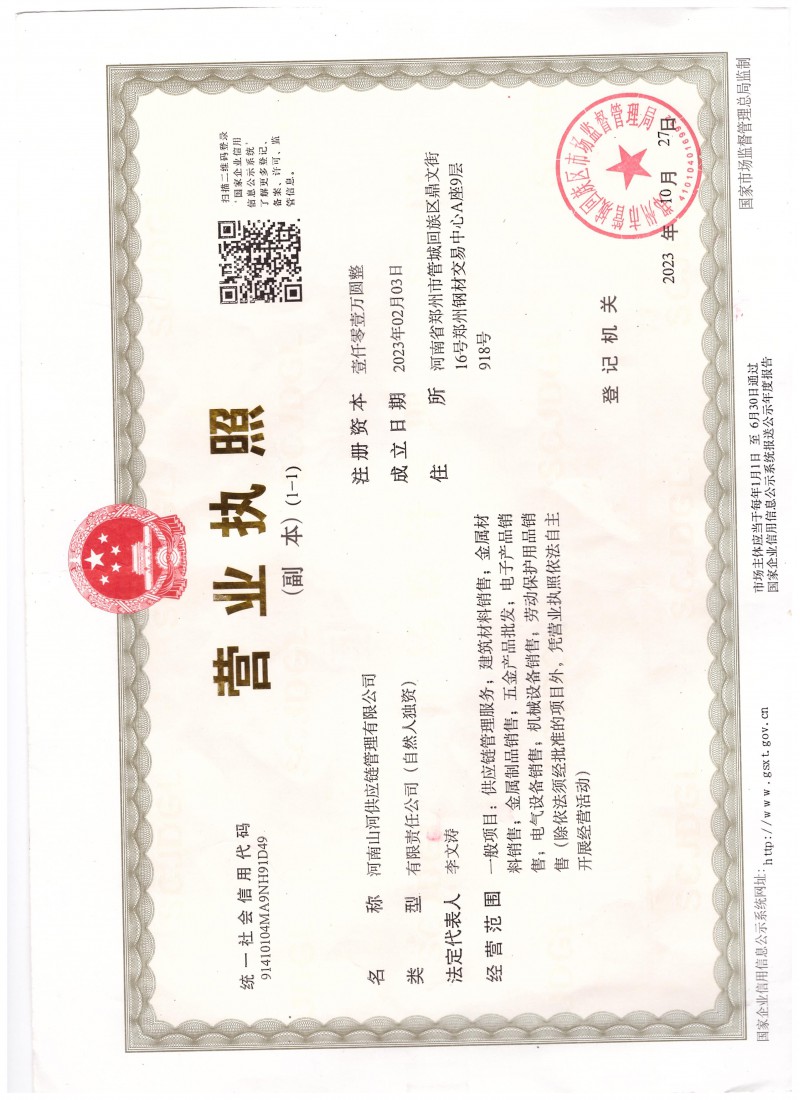 统一社会信用代码
91410104MA9NH91D49
营业执照
(副 本) (1-1)
扫描二维码登录
'国家企业信用
信息公示系统'
了解更多登记、
备案、许可、监
管信息。
名 称 河南山河供应链管理有限公司
类 型 有限责任公司(自然人独资)
法定代表人 李文涛
经营范围 一般项目:供应链管理服务;建筑材料销售;金属材
料销售;金属制品销售;五金产品批发;电子产品销
售;电气设备销售;机械设备销售;劳动保护用品销
售(除依法须经批准的项目外,凭营业执照依法自主
开展经营活动)
注册资本 壹仟零壹万圆整
成立日期 2023年02月03日
住 所 河南省郑州市管城回族区鼎文街
16号郑州钢材交易中心A座9层
918号
登记机关
郑州市管城回族区市场监督管理局
2023 年 10 月 27 日
国家企业信用信息公示系统网址: http://www.gsxt.gov.cn
市场主体应当于每年1月1日 至 6月30日通过
国家企业信用信息公示系统报送公示年度报告
国家市场监督管理总局监制